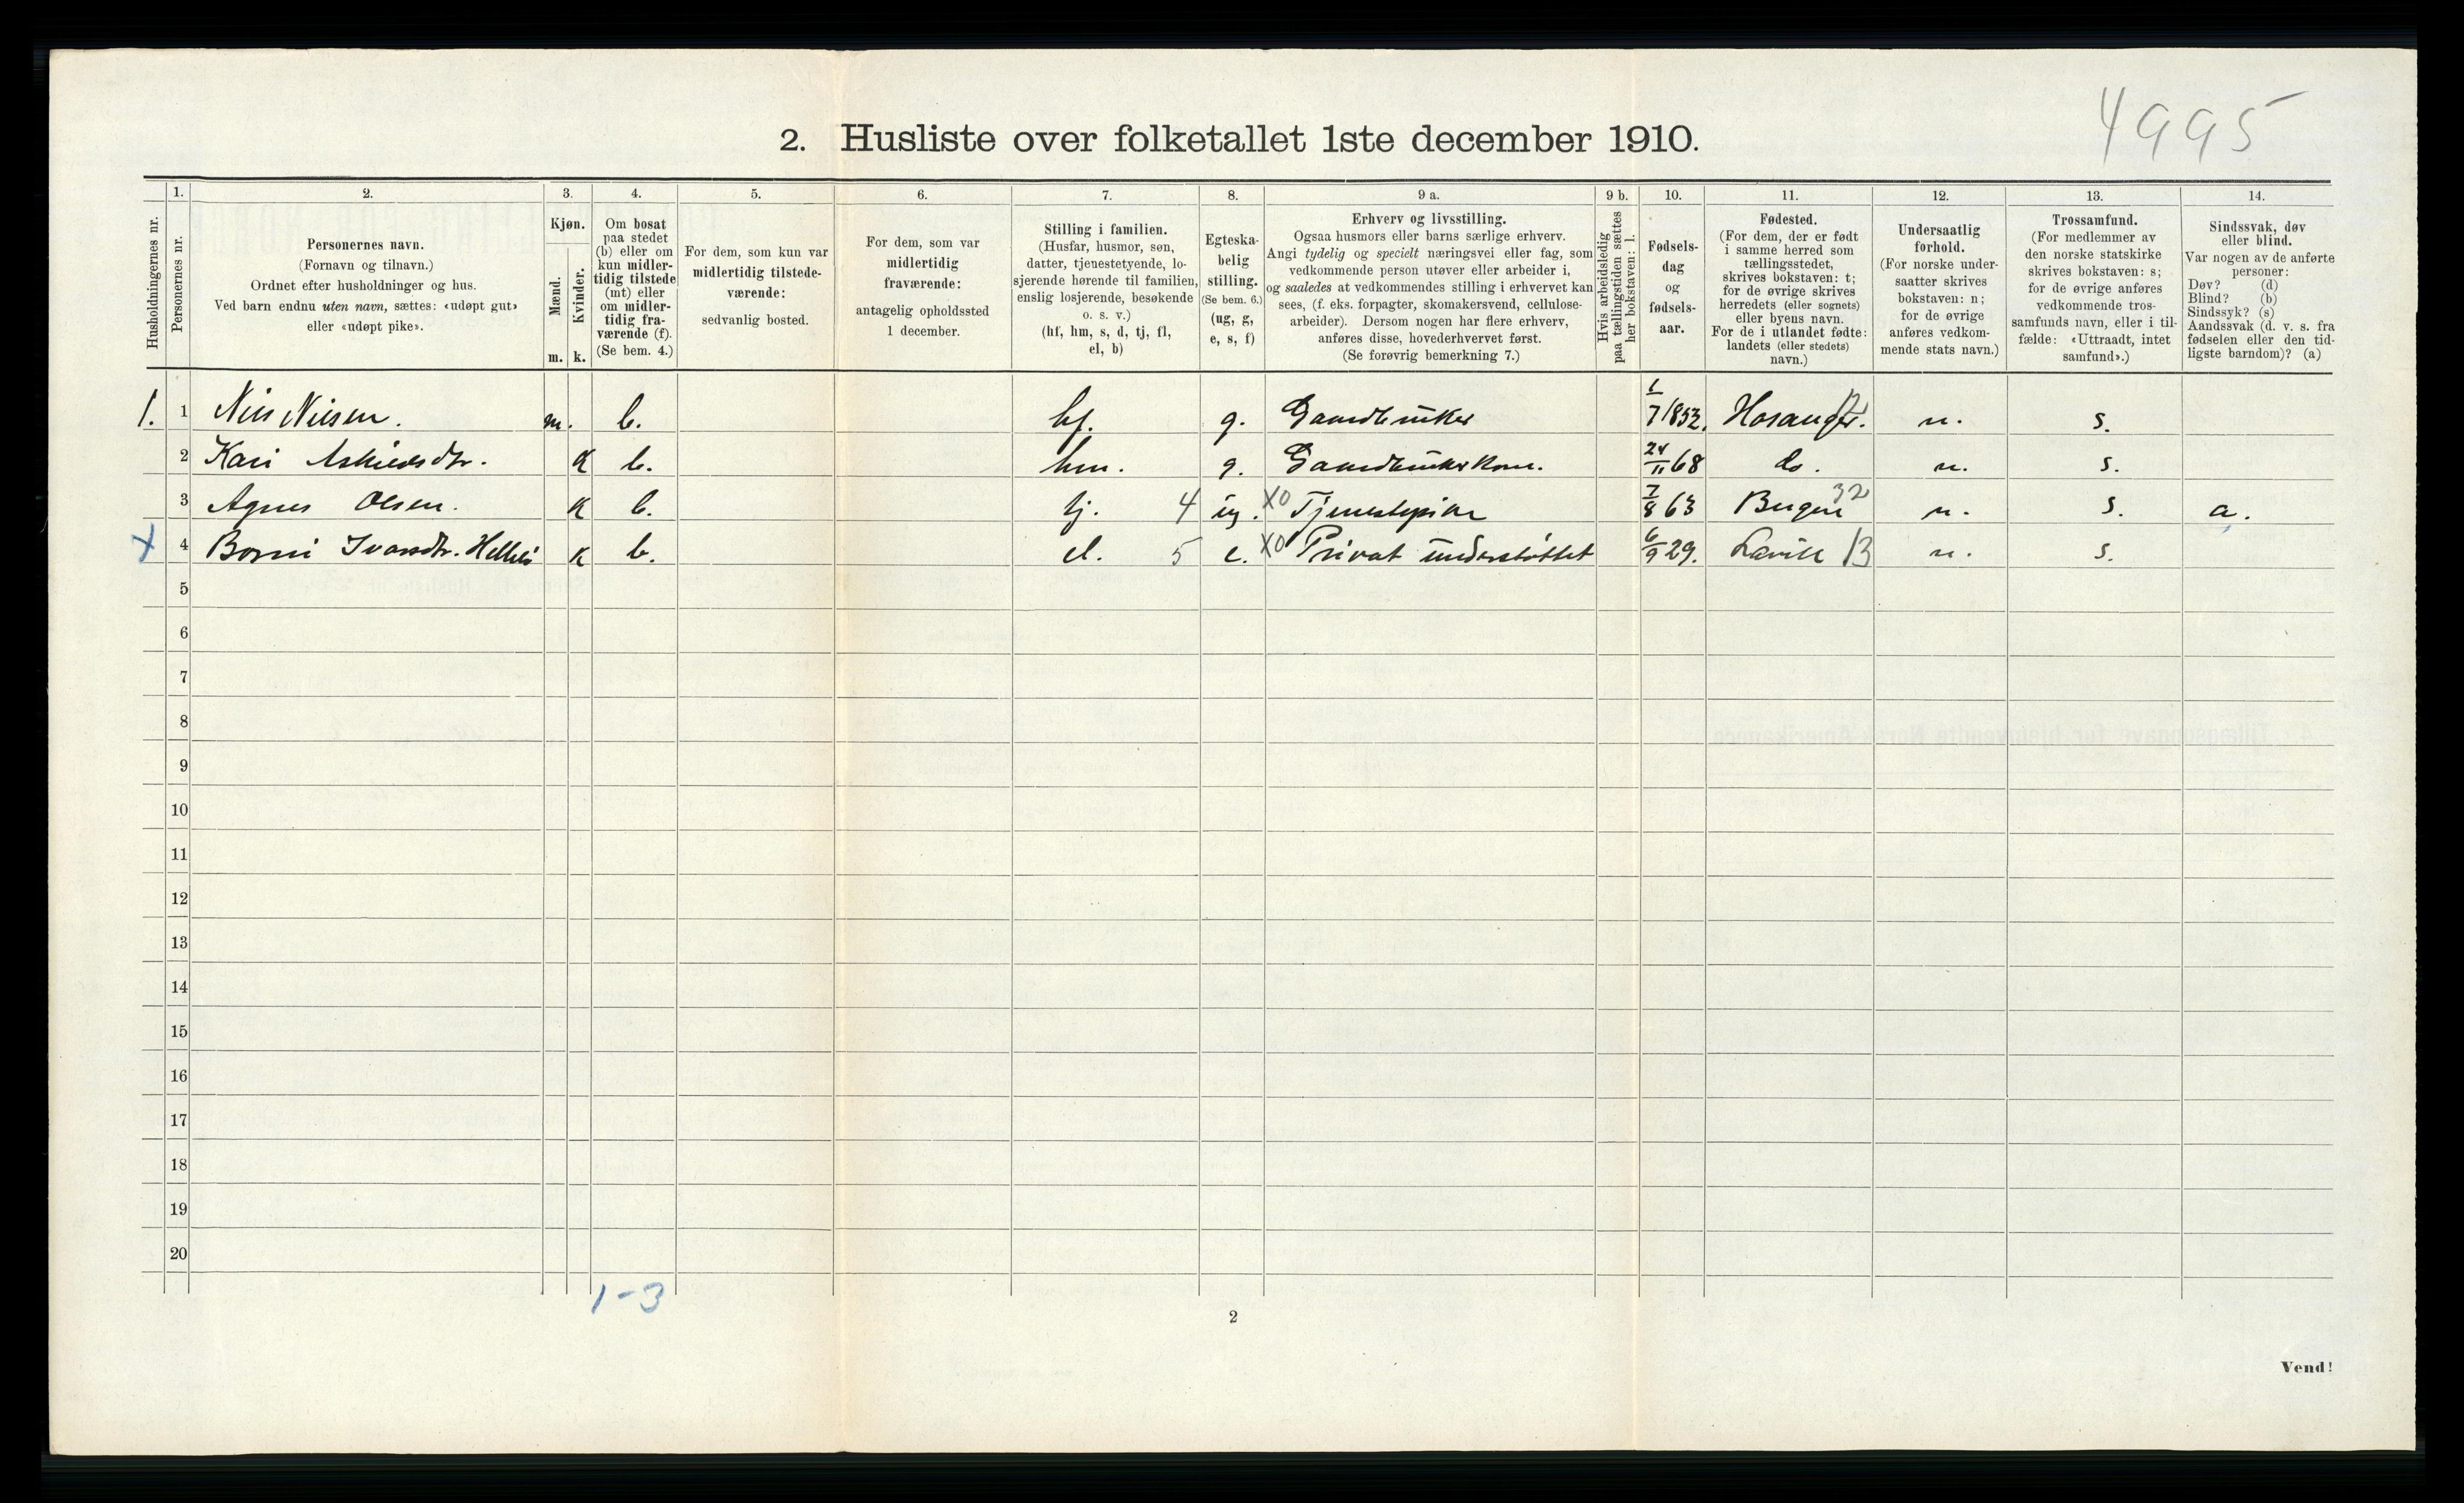 4995
2. Husliste over folketallet 1ste december 1910.
1. 2. 3. 4. 5. 6. 7. 8. 9 a. 9 b. 10. 11. 12. 13. 14.
Husholdningernes nr.
Personernes nr.
Personernes navn.
(Fornavn og tilnavn.)
Ordnet efter husholdninger og hus.
Ved barn endnu uten navn, sættes: «udøpt gut»
eller «udøpt pike».
Kjøn.
Mænd.
Kvinder.
m. k.
Om bosat
paa stedet
(b) eller om
kun midler-
tidig tilstede
(mt) eller
om midler-
tidig fra-
værende (f).
(Se bem. 4.)
For dem, som kun var
midlertidig tilstede-
værende:
sedvanlig bosted.
For dem, som var
midlertidig
fraværende:
antagelig opholdssted
1 december.
Stilling i familien.
(Husfar, husmor, søn,
datter, tjenestetyende, lo-
sjerende hørende til familien,
enslig losjerende, besøkende
o. s. v.)
(hf, hm, s, d, tj, fl,
el, b)
Egteska-
belig
stilling.
(Se bem. 6.)
(ug, g,
e, s, f)
Erhverv og livsstilling.
Ogsaa husmors eller barns særlige erhverv.
Angi tydelig og specielt næringsvei eller fag, som
vedkommende person utøver eller arbeider i,
og saaledes at vedkommendes stilling i erhvervet kan
sees, (f. eks. forpagter, skomakersvend, cellulose-
arbeider). Dersom nogen har flere erhverv,
anføres disse, hovederhvervet først.
(Se forøvrig bemerkning 7.)
Hvis arbeidsledig
paa tællingstiden sættes
her bokstaven: l.
Fødsels-
dag
og
fødsels-
aar.
Fødested.
(For dem, der er født
i samme herred som
tællingsstedet,
skrives bokstaven: t;
for de øvrige skrives
herredets (eller sognets)
eller byens navn.
For de i utlandet fødte:
landets (eller stedets)
navn.)
Undersaatlig
forhold.
(For norske under-
saatter skrives
bokstaven: n;
for de øvrige
anføres vedkom-
mende stats navn.)
Trossamfund.
(For medlemmer av
den norske statskirke
skrives bokstaven: s;
for de øvrige anføres
vedkommende tros-
samfunds navn, eller i til-
fælde: «Uttraadt, intet
samfund».)
Sindssvak, døv
eller blind.
Var nogen av de anførte
personer:
Døv? (d)
Blind? (b)
Sindssyk? (s)
Aandssvak (d. v. s. fra
fødselen eller den tid-
ligste barndom)? (a)
1. 1 Nils Nilsen. m. b. hf. g. Gaardbruker 1/7 1852. Hosanger. n. s.
2 Kari Askildsdtr. K b. hm. g. Gaardbrukerkone. 24/11 68 do. n. s.
3 Agnes Olsen. K b. tj. 4 ug. X0 Tjenestepike 7/8 63 Bergen 32 n. s. a.
X 4 Ivarsdtr. K b. el. 5 e. X0 Privat understøttet 6/9 29. Lavik 13 n. s.
5
6
7
8
9
10
11
12
13
14
15
16
17
18
19
20
1-3
2
Vend!